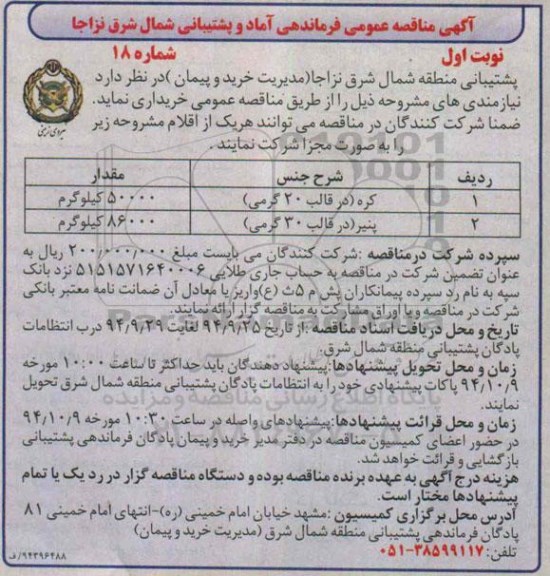 آگهی مناقصه عمومی فرماندهی آماد و پشتیبانی شمال شرق نزاجا
نوبت اول
شماره ۱۸
پشتیبانی منطقه شمال شرق نزاجا(مدیریت خرید و پیمان )در نظر دارد
نیازمندی های مشروحه ذیل را از طریق مناقصه عمومی خریداری نماید.
ضمنا شرکت کنندگان در مناقصه می توانند هریک از اقلام مشروحه زیر
را به صورت مجزا شرکت نمایند .
ردیف شرح جنس مقدار
۱ کره (در قالب ۲۰ گرمی) ۵۰۰۰۰ کیلوگرم
۲ پنیر(در قالب ۳۰ گرمی) ۸۶۰۰۰ کیلوگرم
سپرده شرکت درمناقصه :شرکت کنندگان می بایست مبلغ ۲۰۰/۰۰۰/۰۰۰ ریال به
عنوان تضمین شرکت در مناقصه به حساب جاری طلایی ۵۱۵۱۵۷۱۶۴۰۰۰۶ نزد بانک
سپه به نام رد سپرده پیمانکاران پش م ۵ث (ع)واریز یا معادل آن ضمانت نامه معتبر بانکی
شرکت در مناقصه و یا اوراق مشارکت به مناقصه گزار ارائه نمایند.
تاریخ و محل دریافت اسناد مناقصه :از تاریخ ۹۴/۹/۲۵ لغایت ۹۴/۹/۲۹ درب انتظامات
پادگان پشتیبانی منطقه شمال شرق.
زمان و محل تحویل پیشنهادها:پیشنهاد دهندگان باید حداکثر تا ساعت ۱۰:۰۰ مورخه
۹۴/۱۰/۹ پاکات پیشنهادی خود را به انتظامات پادگان پشتیبانی منطقه شمال شرق تحویل
نمایند.
زمان و محل قرائت پیشنهادها:پیشنهادهای واصله در ساعت ۱۰:۳۰ مورخه ۹۴/۱۰/۹
در حضور اعضای کمیسیون مناقصه در دفتر مدیر خرید و پیمان پادگان فرماندهی پشتیبانی
بازگشایی و قرائت خواهد شد.
هزینه درج آگهی به عهده برنده مناقصه بوده و دستگاه مناقصه گزار در رد یک یا تمام
پیشنهادها مختار است.
آدرس محل برگزاری کمیسیون :مشهد خیابان امام خمینی (ره)-انتهای امام خمینی ۸۱
پادگان فرماندهی پشتیبانی منطقه شمال شرق (مدیریت خرید و پیمان)
تلفن:۳۸۵۹۹۱۱۷-۰۵۱
۹۴۳۹۶۴۸۸/ف